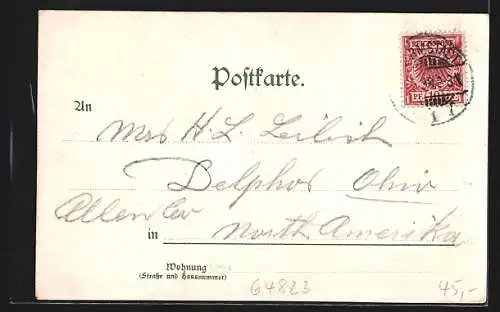 Postkarte.
An
Mrs H. L.
Delphos Ohio
Allen Co
in North Amerika
Wohnung
(Straße und Hausnummer)
64823
45,-